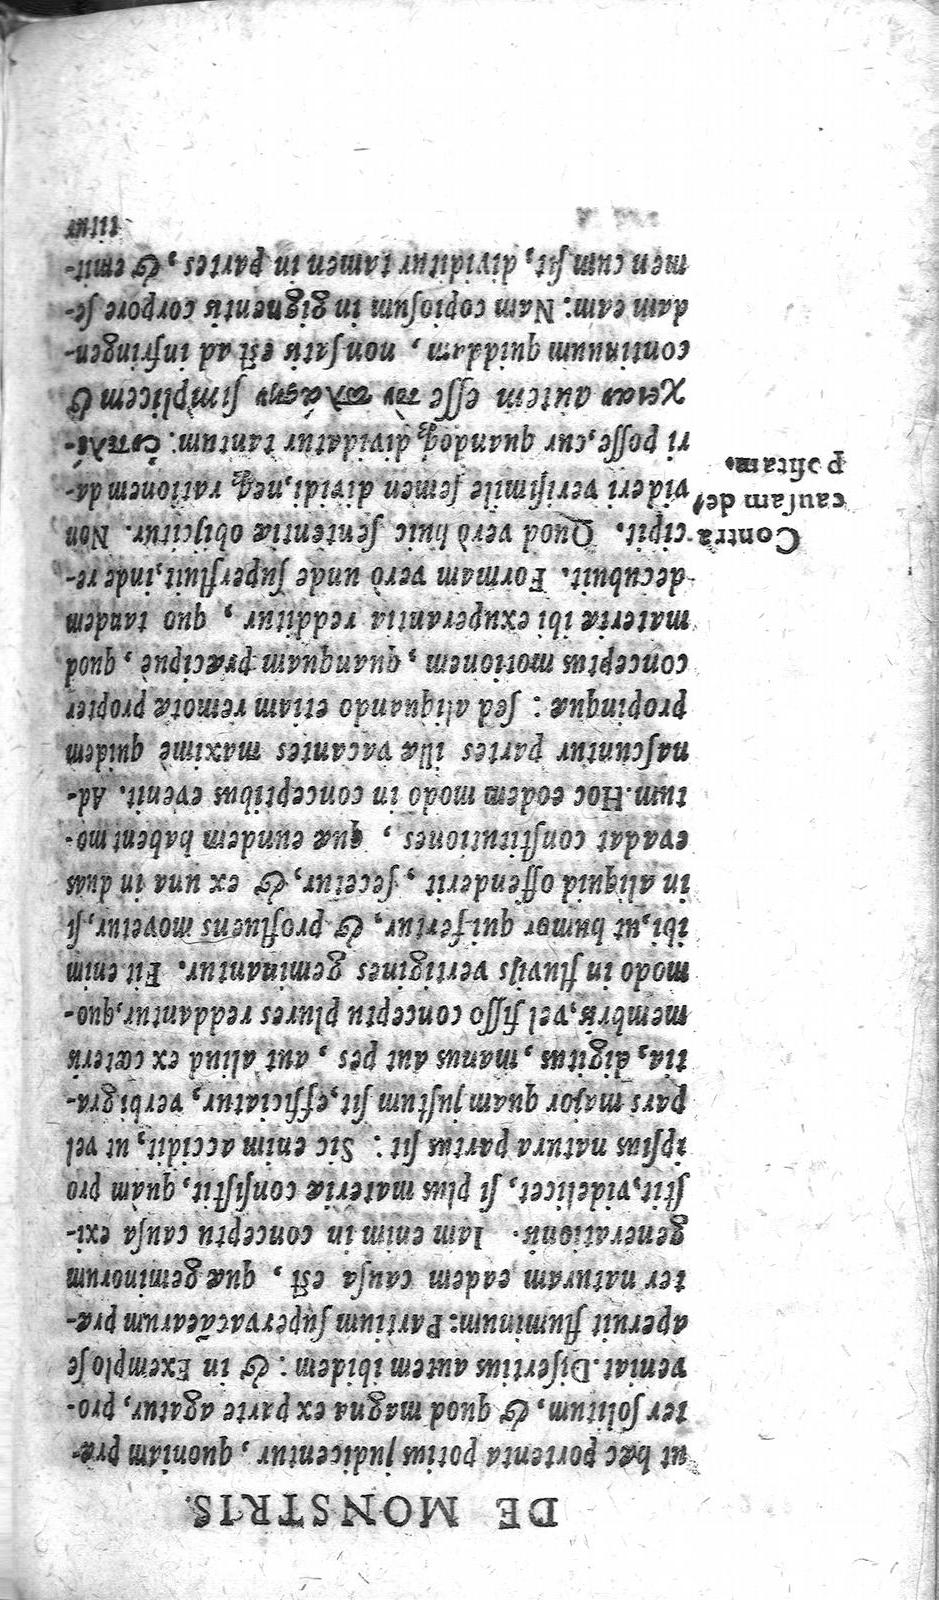 DE MONSTRIS.
ut hæc portenta potius judicentur, quoniam præ-
ter solitum, & quod magna ex parte agatur, pro-
veniat. Disertius autem ibidem: & in Exemplo se
aperuit fluminum: Partium supervacaearum præ-
ter naturam eadem causa est, quæ geminorum
generationis. Iam enim in conceptu causa exi-
stit, videlicet, si plus materiæ consistit, quàm pro
ipsius natura partus sit: Sic enim accidit, ut vel
pars major quam justum sit, efficiatur, verbi gra-
tia, digitus, manus aut pes, aut aliud ex cæteris
membris, vel fisso conceptu plures reddantur, quo-
modo in fluvijs vertigines geminantur. Fit enim
ibi, ut humor qui fertur, & profluens movetur, si
in aliquid offenderit, secetur, & ex una in duas
evadat constitutiones, quæ eundem habent mo-
tum. Hoc eodem modo in conceptibus evenit. Ad-
nascuntur partes illæ vacantes maximè quidem
propinquæ: sed aliquando etiam remotæ propter
conceptus motionem, quanquam præcipuè, quod
materiæ ibi exuperantia redditur, quo tandem
decubuit. Formam verò unde superfluit, inde re-
cipit. Quod verò huic sententiæ obijcitur. Non
videri verisimile semen dividi, neq; rationem da-
ri posse, cur quandoq; dividatur tantum: ἐντελέ-
χειαν autem esse τὸν πλάσην simplicem &
continuum quiddam, non satis est ad infringen-
dam eam: Nam copiosum in gignentis corpore se-
men cum sit, dividitur tamen in partes, & emit-
titur
Contra
causam de
positam.